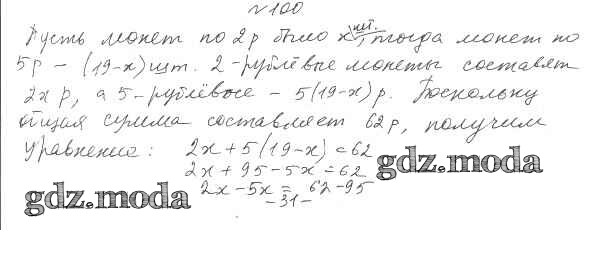 № 100
Пусть монет по 2р было x шт., тогда монет по
5р – (19-x) шт. 2-рублёвые монеты составят
2x р, а 5-рублёвые – 5(19-x) р. Поскольку
общая сумма составляет 62р, получим
уравнение: 2x+5(19-x)=62
2x+95-5x=62
2x-5x=62-95
-31-
gdz.moda
gdz.moda